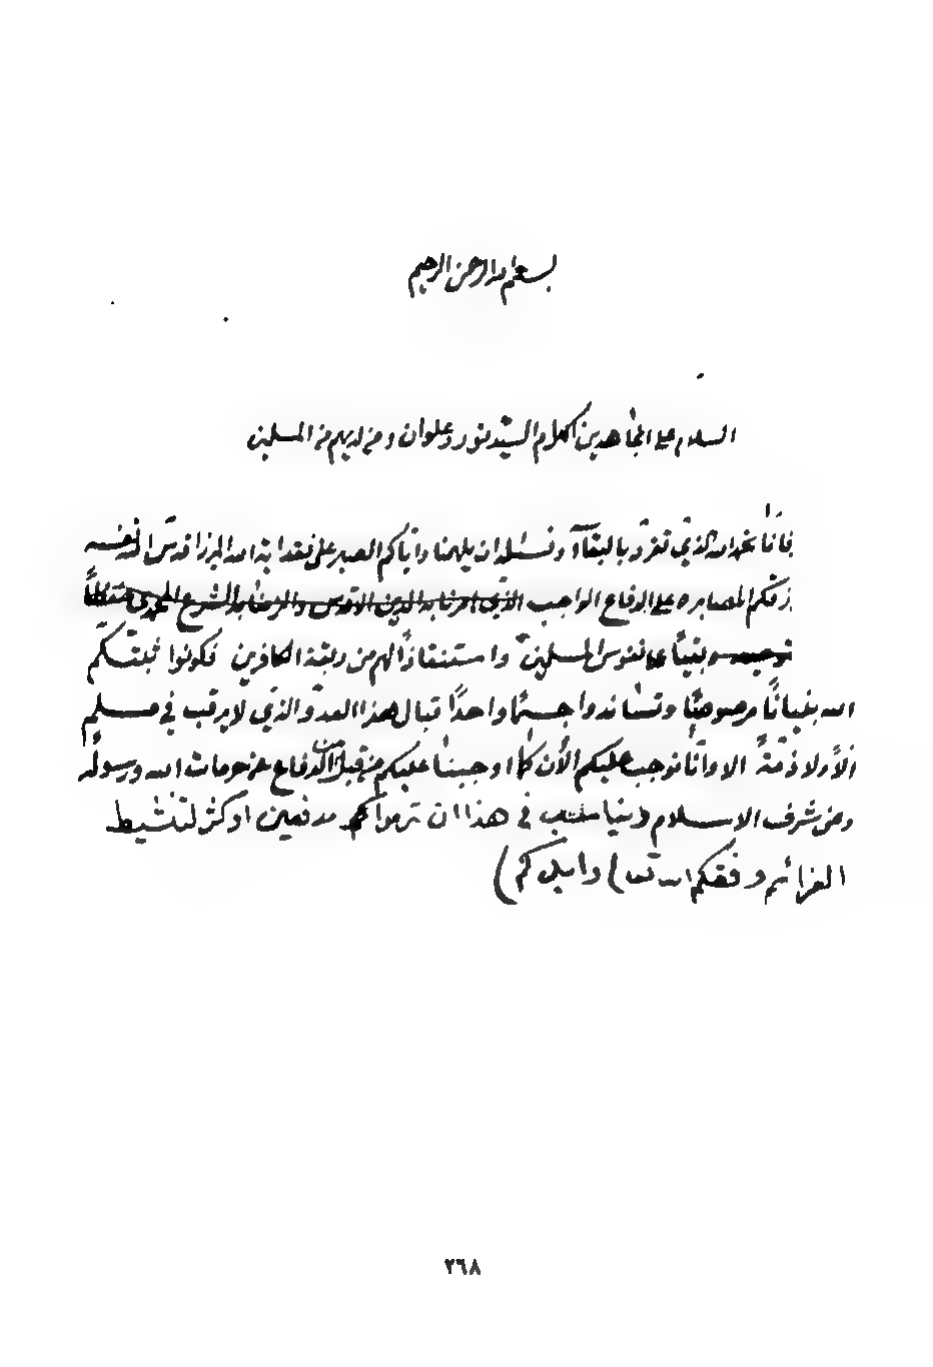 بسم الله الرحمن الرحيم
السلام على المجاهدين الكرام السيد نور وعلوان ومن لديهم من المسلمين
فانا نحمد الله الذي تفرد بالبقاء ونسئله ان يلهمنا واياكم الصبر على فقد اية الله الميرزا قدس الله نفسه
رزقكم المصابره على الدفاع الواجب الذي امرنا به الدين الاقدس والزمنا به الشرع المحمدي
توحيد بقيا على نفوس المسلمين واستنقاذا لهم من ربقة الكافرين فكونوا ثبتكم
الله بنيانا مرصوصا وتساندوا جسما واحدا قبال هذا العدو الذي لا يرقب في مسلم
الا ولا ذمة الا وانا نوجب عليكم الآن كما اوجبنا عليكم من قبل الدفاع عن حرمات الله ورسوله
وعن شرف الاسلام في هذا ان ترموا مدفعين او اكثر لتنشيط
العزائم وفقكم الله تعالى وايدكم)
٢٦٨